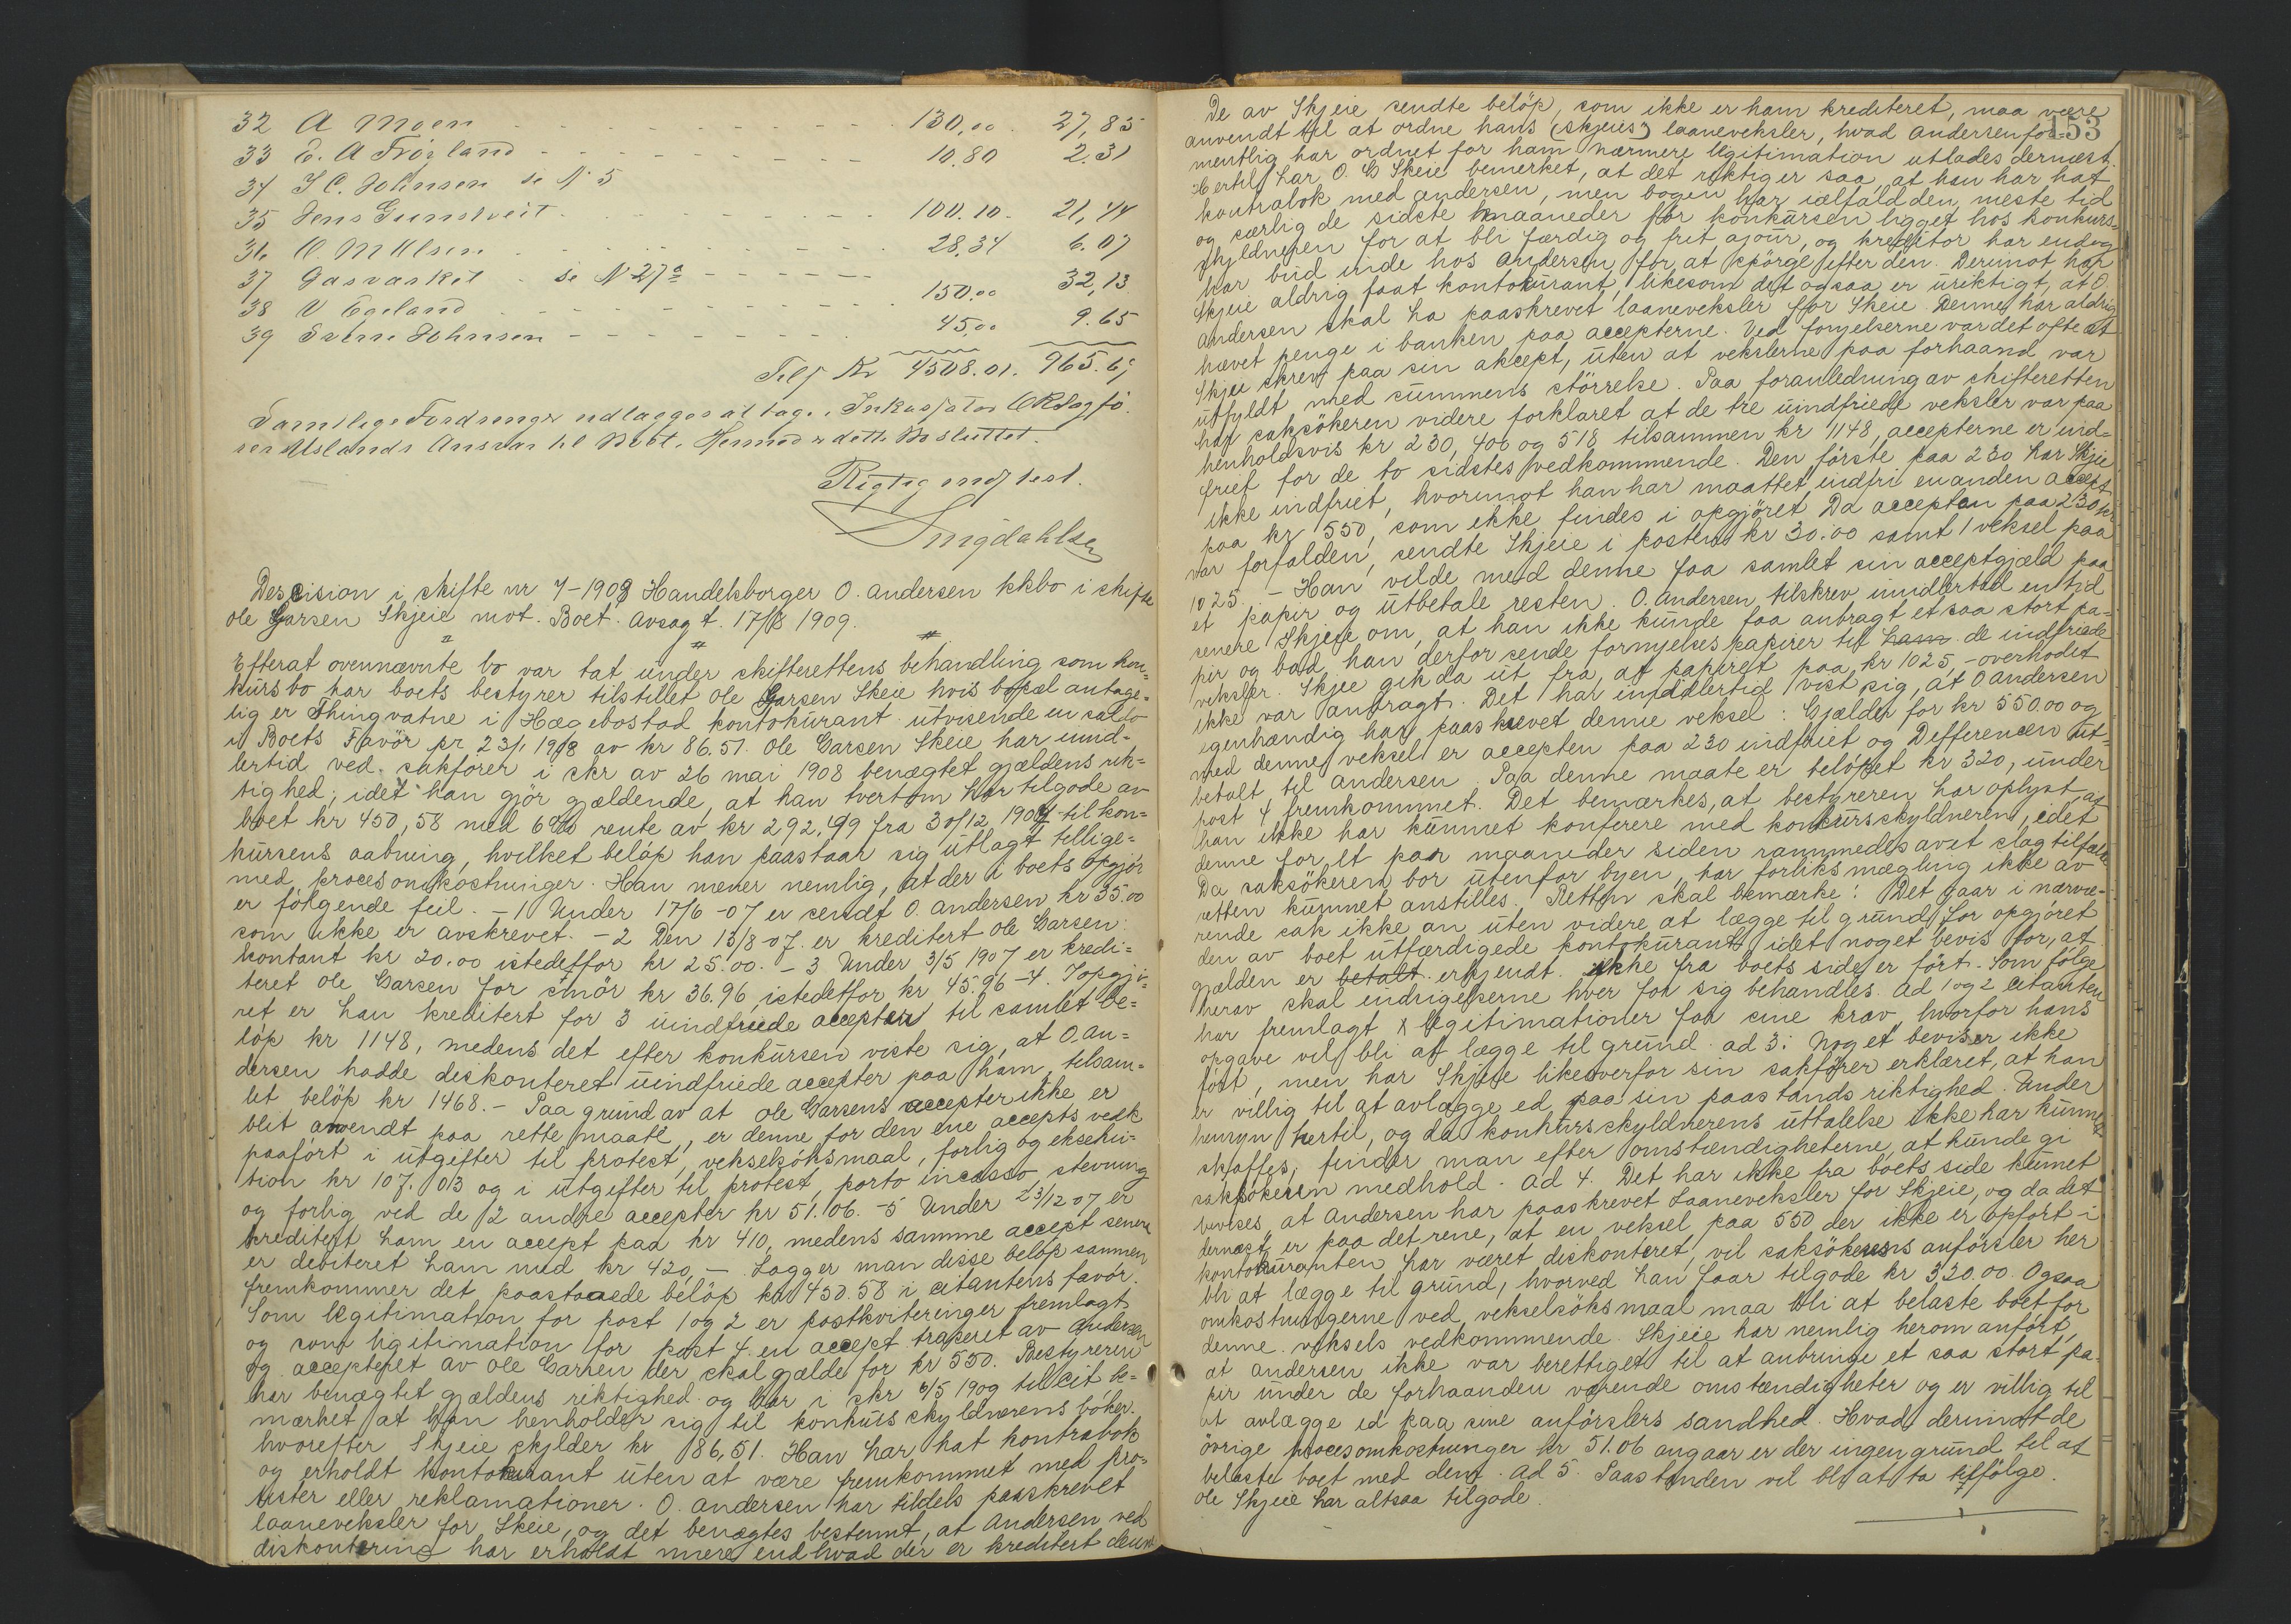 32 A Moen - - - 130,00. 27,85
33 E. A Frøyland - - - 10.80 2.31
34 J C. Johnsen se N 5
35 Jens Gundveit - - - 100.10. 21,44
36 O. M Olsen - - - 28,34 6.07
37 Gasværket - se N 27a - - -
38 O Egeland - - - 150.00 32,13
39 Svenn Johnsen - - - 45,00 9.65
Tils Kr 4508.01. 965.69
Samtlige Fordringer udlægges at tage. Inkasjator
Uslands Ansvar til Boet. Hermed er dette Bo sluttet.
Rigtig indført.
Smigdahlsen
Descision i skifte nr 7-1908 Handelsborger O. Andersen kkbo i skifte
Ole Garsen Skjeie mot. Boet. Avsagt. 17/8 1909.
Efterat ovennævnte bo var tat under skifterettens behandling som kon=
kursbo har boets bestyrer tilstillet Ole Garsen Skeie hvis bopæl antage=
lig er Thingvatne i Hægebostad kontokurant utvisende en saldo
i Boets Favör pr 23/1 1908 av kr 86.51. Ole Garsen Skeie har imid=
lertid ved. sakförer i skr av 26 mai 1908 benægtet gjældens rik=
tighed, idet han gjör gjældende, at han tvertom har tilgode av
boet kr 450,58 med 6% rente av kr 292,49 fra 30/12 1907 til kon=
kursens aabning, hvilket belöp han paastaar sig utlagt tillige=
med procesomkostninger. Han mener nemlig, at der i boets opgjör
er fölgende feil. - 1 Under 17/6-07 er sendt O. Andersen kr 35.00
som ikke er avskrevet. - 2 Den 13/8-07. er kreditert Ole Garsen:
kontant kr 20.00 istedetfor kr 25.00. - 3 Under 3/5 1907 er kredi=
teret Ole Garsen for smör kr 36.96 istedetfor kr 45.96 - 4. I opgjö=
ret er han kreditert for 3 uindfriede accepter til samlet be=
löp kr 1148, medens det efter konkursen viste sig, at O. An=
dersen hadde diskonteret uindfriede accepter paa ham, tilsam=
let belöp kr 1468. - Paa grund av at Ole Garsens accepter ikke er
blit anvendt paa rette maate, er denne for den ene accepts vedk
paafört i utgifter til protest, vekselsöksmaal, forlig og eksekü=
tion kr 107.03 og i utgifter til protest, porto incasso, stevning
og forlig ved de 2 andre accepter kr 51.06. - 5 Under 23/12 07 er
kreditert ham en accept paa kr 410, medens samme accept senere
er debiteret ham med kr 420, - Lægger man disse belöp sammen
fremkommer det paastaaede belöp kr 450.58 i citantens favör.
Som legitimation for post 1 og 2 er postkviteringer fremlagt
og som legitimation for post 4. en accept traseret av Andersen
og accepteret av Ole Garsen der skal gjælde for kr 550. Bestyreren
har benægtet gjældens riktighed og har i skr 6/5 1909 til cit be=
mærket at han henholder sig til konkursskyldnerens böker.
hvorefter Skjeie skylder kr 86,51. Han har hat kontrabok
og erholdt kontokurant uten at være fremkommet med pro=
tester eller reklamationer. O. Andersen har tildels paaskrevet
laaneveksler for Skeie, og det benægtes bestemt, at Andersen ved
diskontering har erholdt mere end hvad der er kreditert denne
153
De av Skjeie sendte belöp, som ikke er ham krediteret, maa være
anvendt til at ordne hans (Skjeies) laaneveksler, hvad Andersen for=
mentlig har ordnet for ham Nærmere legitimation utlades dernæst.
Hertil har O. G Skeie bemerket, at det riktig er saa, at han har hat
kontrabok med Andersen, men bogen har ialfald den meste tid
og særlig de sidste maaneder för konkursen ligget hos konkurs=
skyldneren for at bli færdig og frit ajour, og kreditor har endog
har bud inde hos Andersen for at spörge efter den. Derimot har
Skjeie aldrig faat kontokurant, likesom det ogsaa er uriktigt, at O.
Andersen skal ha paaskrevet laaneveksler for Skeie. Denne har aldrig
hævet penge i banken paa accepterne. Ved fornyelserne var det ofte at
Skjeie skrev paa sin aksept, uten at vekslerne paa forhaand var
utfyldt med summens störrelse. Paa foranledning av skifteretten
har saksökeren videre forklaret at de tre uindfriede veksler var paa
henholdsvis kr 230, 400 og 518 tilsammen kr 1148, accepterne er ind=
friet for de to sidstes vedkommende. Den förste paa 230 har Skjeie
ikke indfriet, hvorimot han har maattet indfri en anden accept
paa kr 550, som ikke findes i opgjöret Da accepten paa 230 kr
var forfalden, sendte Skjeie i posten kr 30.00 samt 1 veksel paa
1025. - Han vilde med denne faa samlet sin acceptgjæld paa
et papir og utbetale resten. O. Andersen tilskrev imidlertid en tid
senere Skjeie om, at han ikke kunde faa anbragt et saa stort pa=
pir og bad han derfor sende fornyelsespapirer til ham de indfriede
veksler. Skjeie gik da ut fra, at papiret paa kr 1025,- overhodet
ikke var anbragt. Det har imidlertid vist sig, at O Andersen
egenhændig har paaskrevet denne veksel: Gjælder for kr 550.00 og
med denne veksel er accepten paa 230 indfriet og Differencen ut=
betalt til Andersen. Paa denne maate er belöpet kr 320, under
post 4 fremkommet. Det bemærkes, at bestyreren har oplyst at
han ikke har kunnet konferere med konkursskyldneren, idet
denne for et par maaneder siden rammedes av et slagtilfælde
Da saksökeren bor utenfor byen, har forliksmægling ikke av
retten kunnet anstilles. Retten skal bemærke: Det gaar i nærvæ=
rende sak ikke an uten videre at lægge til grund for opgjöret
den av boet utfærdigede kontokurant, idet noget bevis for, at
gjælden er betalt erkjendt. ikke fra boets side er fört. Som fölge
herav skal indsigelserne hver for sig behandles. ad 1 og 2 citanten
har fremlagt legitimationer for sine krav hvorfor hans
opgave vil bli at lægge til grund. ad 3: Noget bevis er ikke
fört, men har Skjeie likeoverfor sin sakförer erklæret, at han
er villig til at avlægge ed paa sin paastands riktighed. Under
hensyn hertil, og da konkursskyldnerens uttalelse ikke har kunnet
skaffes, finder man efter omstændigheterne, at kunde gi
saksökeren medhold. Ad 4. Det har ikke fra boets side kunnet
bevises, at Andersen har paaskrevet Laaneveksler for Skjeie, og da det
dernæst er paa det rene, at en veksel paa 550 der ikke er opfört i
kontokuranten har været diskonteret, vil saksökerens anförsler her
bli at lægge til grund, hvorved han faar tilgode kr 320.00. Ogsaa
omkostningerne ved vekselsöksmaal maa bli at belaste boet for
denne veksels vedkommende. Skjeie har nemlig herom anfört,
at Andersen ikke var berettiget til at anbringe et saa stort pa=
pir under de forhaanden værende omstændigheter og er villig til
at avlægge ed paa sine anförslers sandhed. Hvad derimot de
övrige procesomkostninger kr 51.06 angaar er der ingen grund til at
belaste boet med dem. Ad 5. Paastanden vil bli at ta tilfölge.
Ole Skjeie har altsaa tilgode.